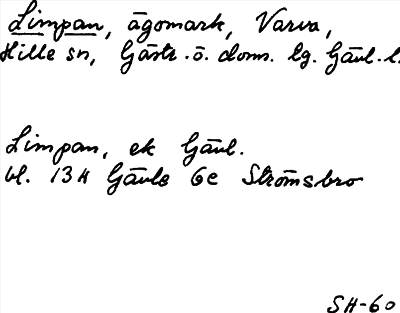 Limpan, ägomark, Varva,
Hille sn, Gästr. ö. doms. lg. Gävl. l.
Limpan, ek Gävl.
bl. 13H Gävle 6c Strömsbro
SH-60